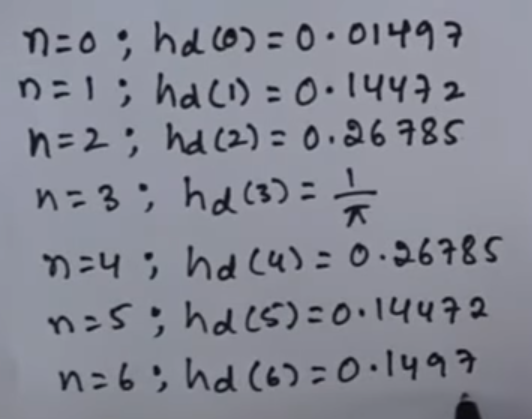 n=0 ; hd(0)=0.01497
n=1 ; hd(1)=0.14472
n=2 ; hd(2)=0.26785
n=3 ; hd(3)=1/π
n=4 ; hd(4)=0.26785
n=5 ; hd(5)=0.14472
n=6 ; hd(6)=0.1497